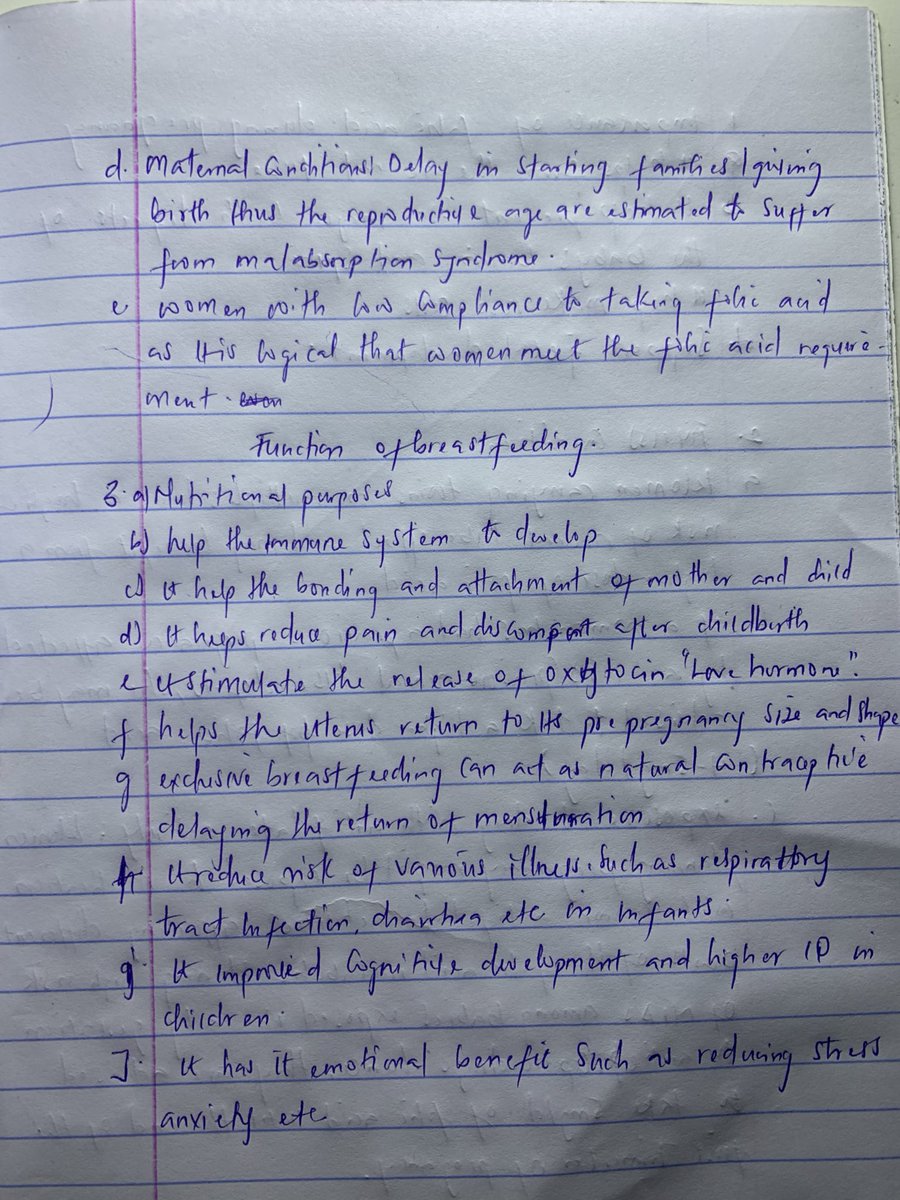 d. Maternal Conditions: Delay in starting families / giving
birth thus the reproductive age are estimated to suffer
from malabsorption syndrome.
e women with low compliance to taking folic acid
as it is logical that women meet the folic acid require-
ment.
Function of breastfeeding.
3. a) Nutritional purposes
b) help the immune system to develop
c) It help the bonding and attachment of mother and child
d) It helps reduce pain and discomfort after childbirth
e It stimulate the release of oxytocin "Love hormone".
f helps the uterus return to its prepregnancy size and shape
g exclusive breastfeeding can act as natural contraceptive
delaying the return of menstruation
h It reduce risk of various illness. Such as respiratory
tract infection, diarrhea etc in infants.
g. It improved Cognitive development and higher IQ in
children.
J. It has it emotional benefit such as reducing stress
anxiety etc